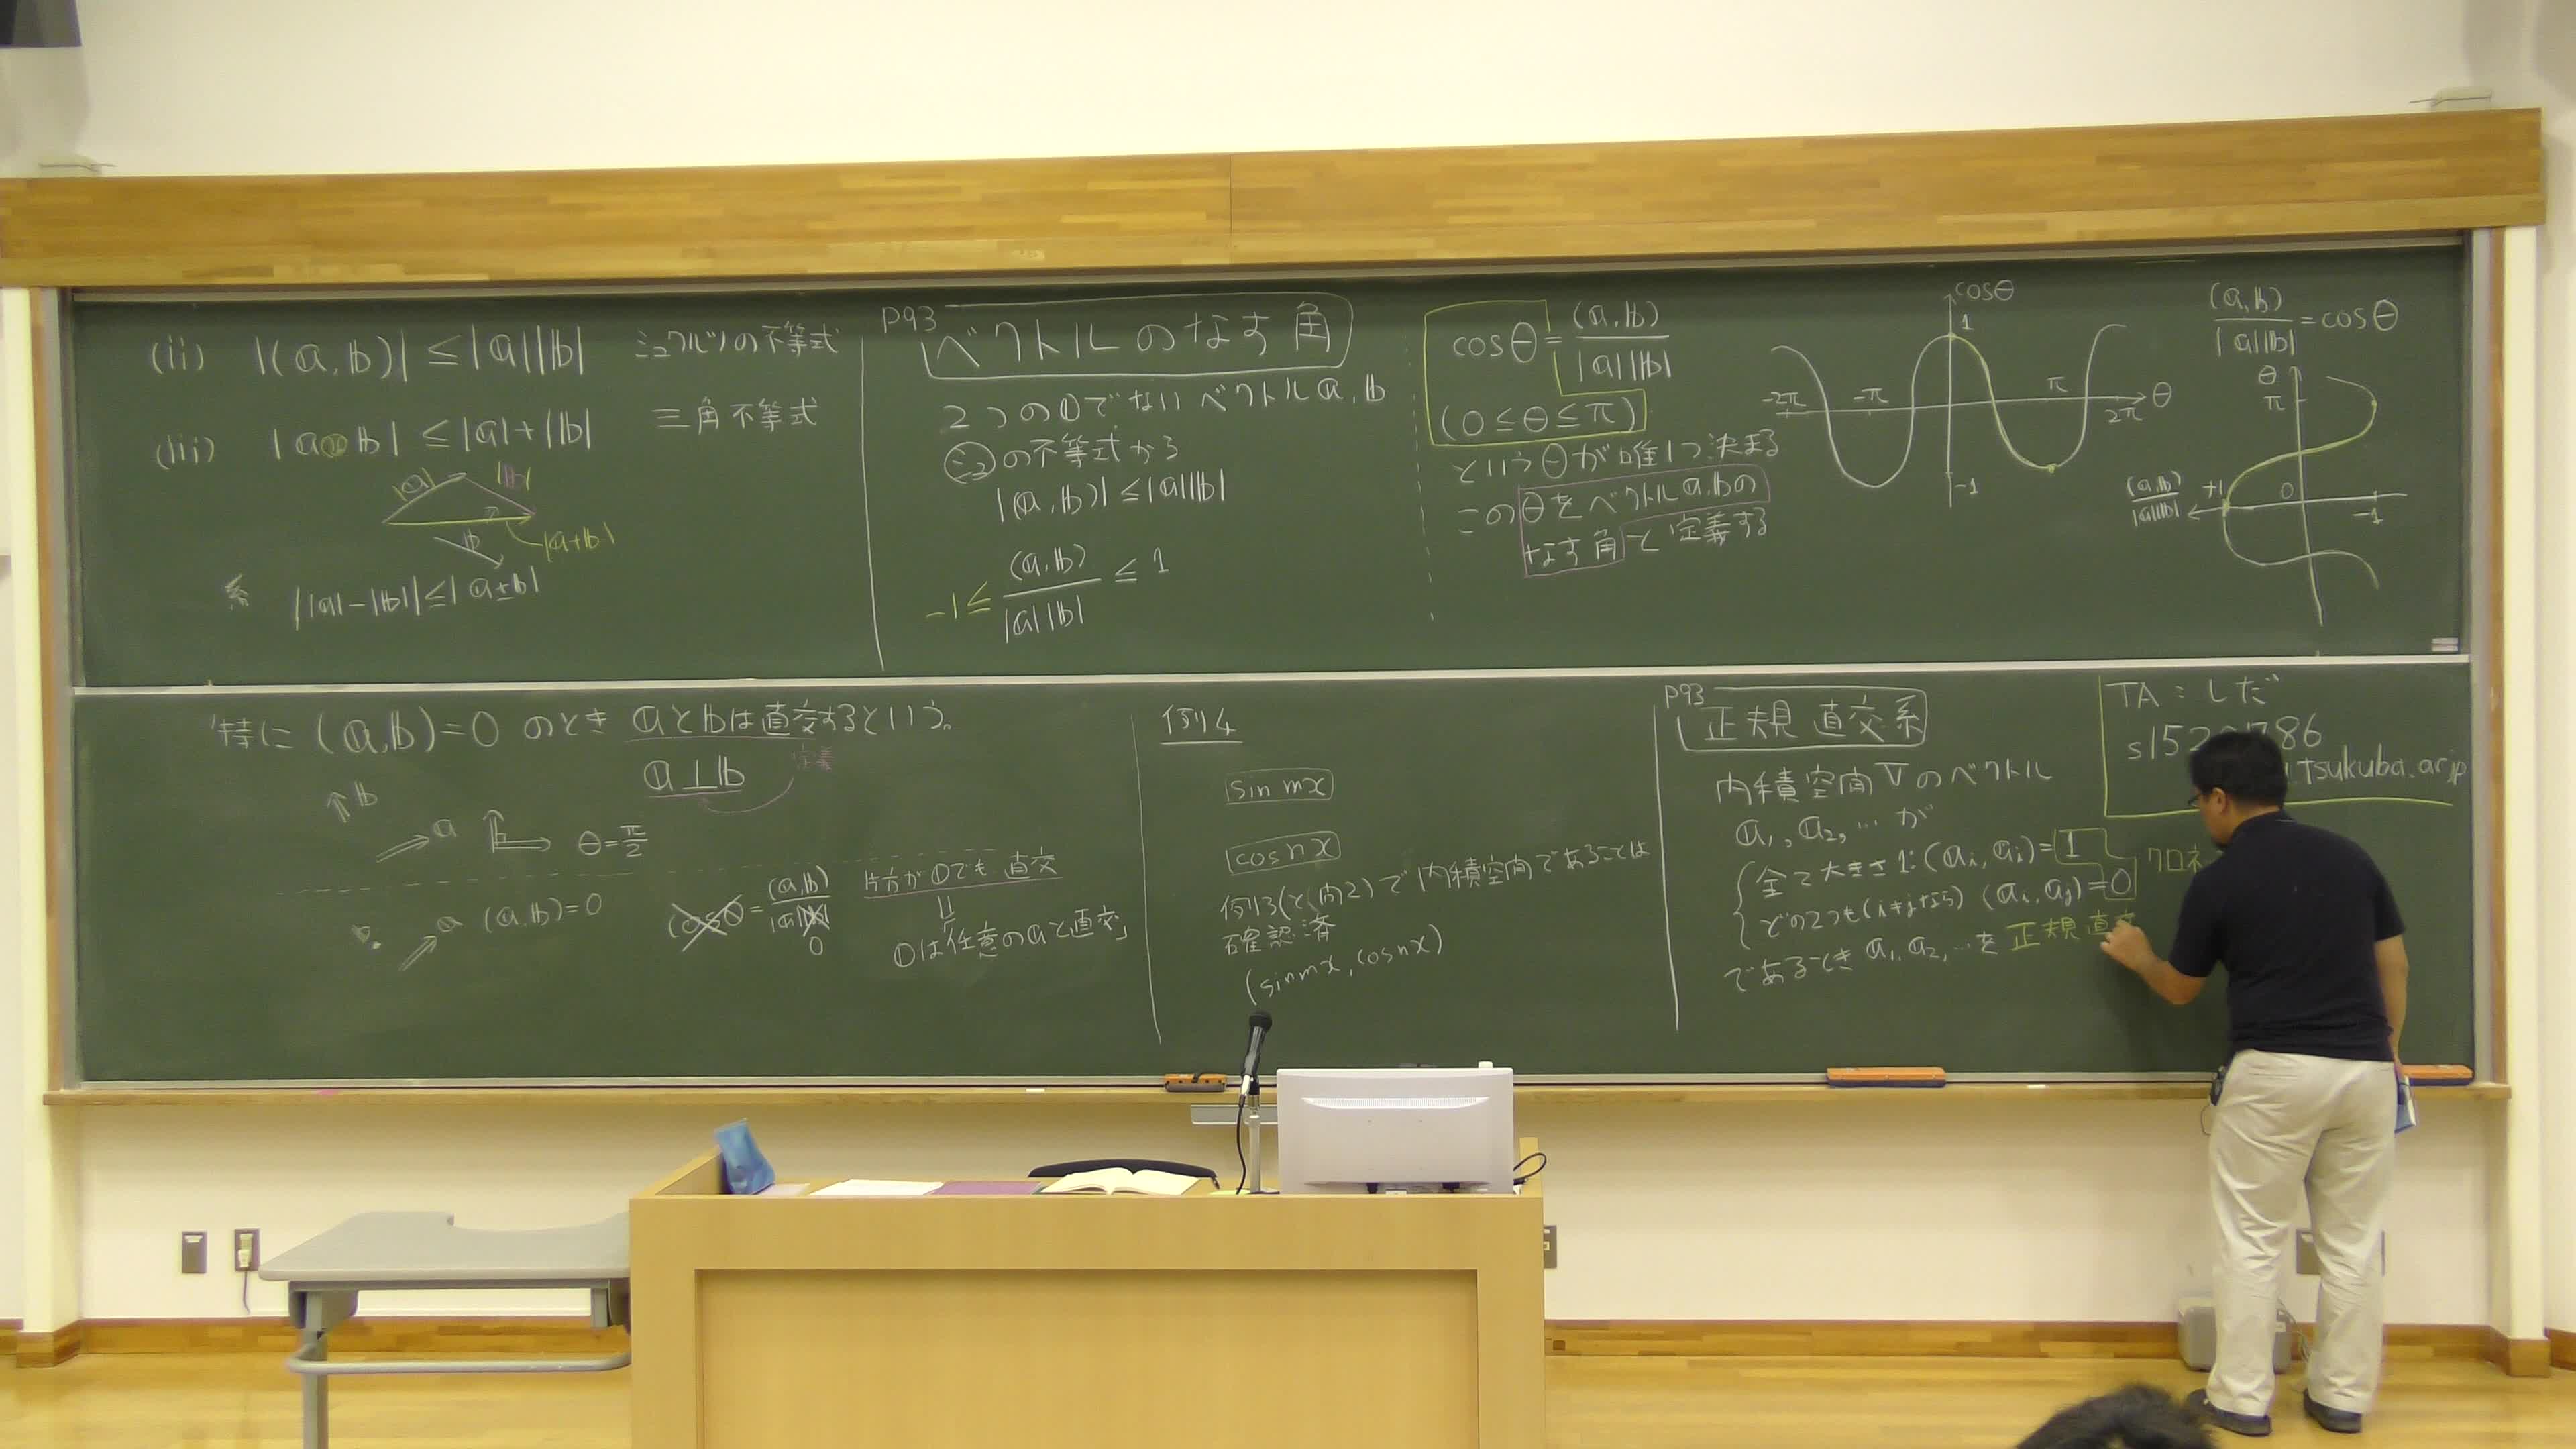 (ii) |(a,b)| ≤ |a||b| シュワルツの不等式
(iii) |a+b| ≤ |a|+|b| 三角不等式
|a|
|b|
b
|a+b|
系 ||a|-|b|| ≤ |a±b|
P93
ベクトルのなす角
2つの0でないベクトルa,b
シュの不等式から
|(a,b)| ≤ |a||b|
-1 ≤ (a,b)/|a||b| ≤ 1
cosθ = (a,b)/|a||b|
(0≤θ≤π)
というθが唯1つ決まる
このθをベクトルa,bの
なす角と定義する
cosθ
1
-2π -π π 2π θ
-1
(a,b)/|a||b| = cosθ
θ
π
(a,b)/|a||b| +1 0 -1
特に (a,b)=0 のとき aとbは直交するという。
a⊥b
定義
b
a
θ=π/2
a (a,b)=0
cosθ = (a,b)/|a||b|
0
片方が0でも直交
⇓
0は任意のaと直交
例4
sin mx
cos nx
例3(と問2)で内積空間であることは
確認済
(sin mx, cos nx)
P93
正規直交系
内積空間Vのベクトル
a₁, a₂, … が
全て大きさ1: (aᵢ, aᵢ)=1
どの2つも(i≠jなら) (aᵢ, aⱼ)=0
であるとき a₁, a₂, … を 正規直
クロネ
TA:しだ
s152
786
.tsukuba.ac.jp